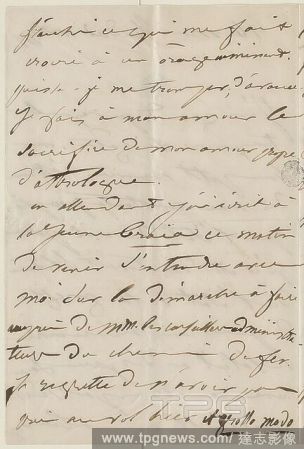 ce qui me fait
croire à un
puisse-je me tromper, d'avance
je fais à mon amour le
sacrifice de mon amour propre
d'astrologue.
en attendant j'ai écrit à
la jeune Craia ce matin
de venir s'entendre avec
moi sur la démarche à faire
auprès de MM. les administra
teurs du chemin de fer.
Je regrette de n'avoir pas
modo
TPG
www.tpgnews.com 達志影像